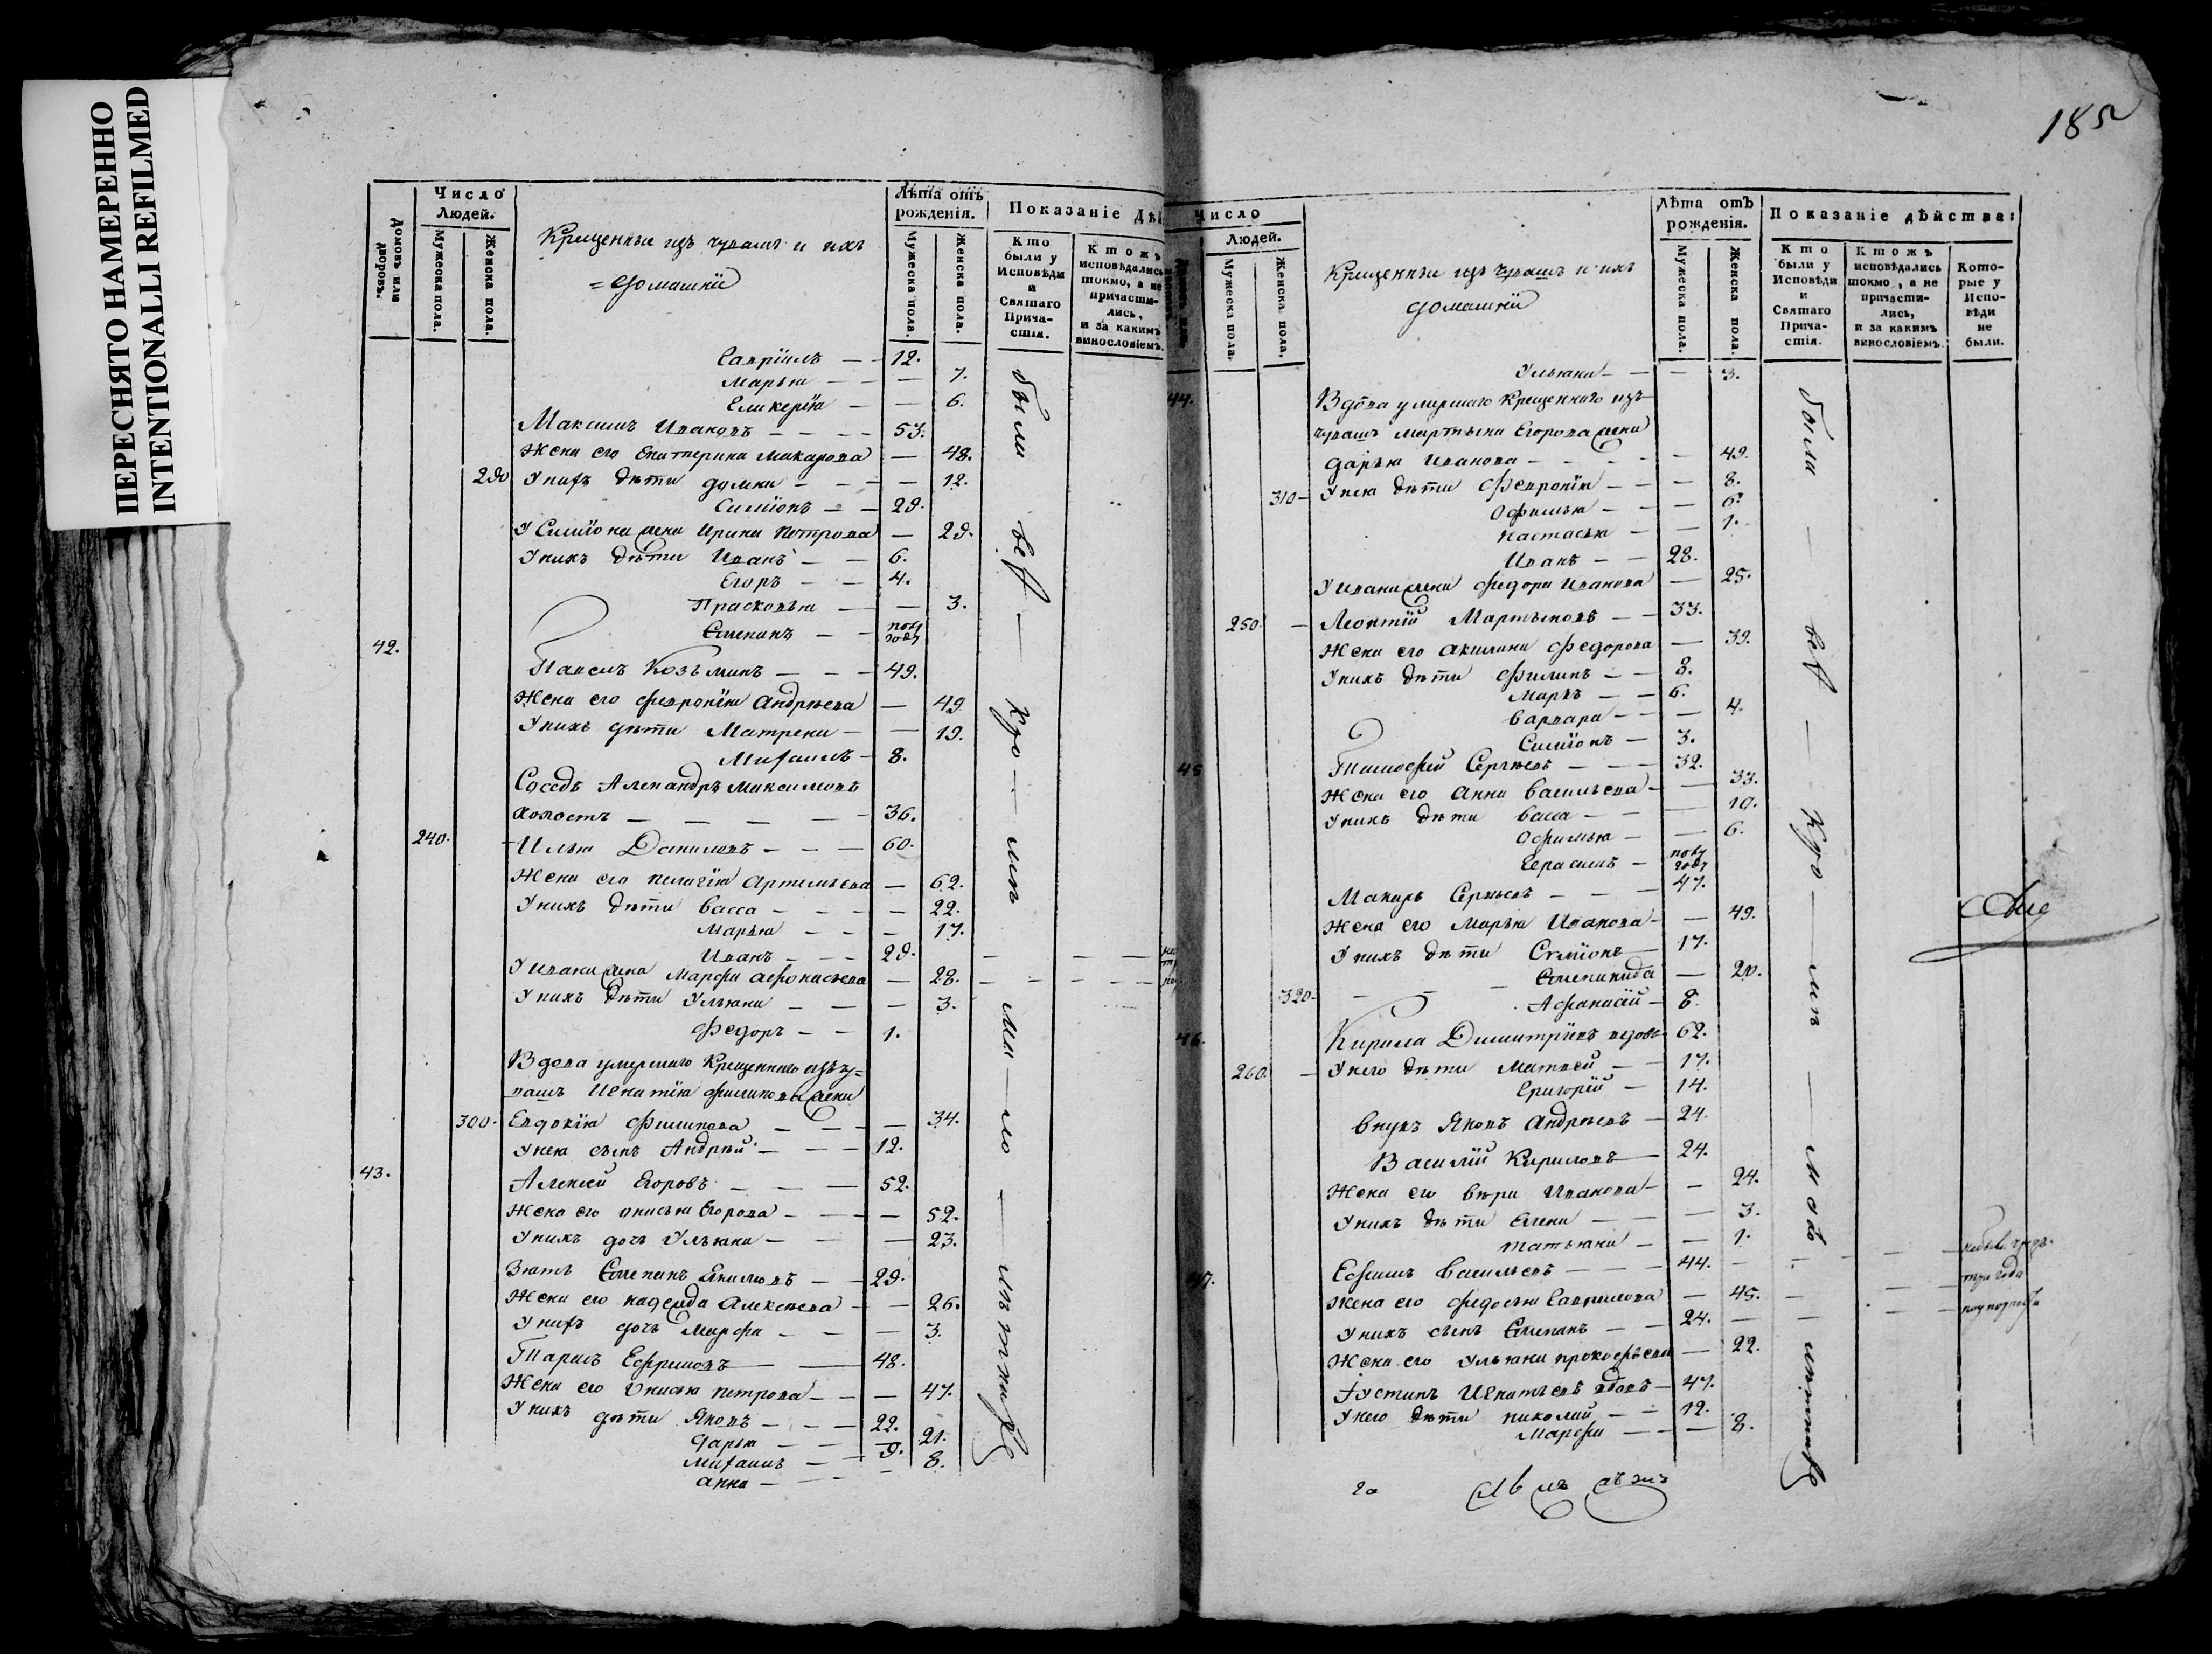 ПЕРЕСНЯТО НАМЕРЕННО
INTENTIONALLI REFILMED
Домовъ или дворовъ.
Число Людей.
Мужеска пола.
Женска пола.
Крещенные изъ чувашъ и ихъ
= домашніи
Лѣта отъ рожденія.
Мужеска пола.
Женска пола.
Показаніе дѣй
Кто были у Исповѣди и Святаго Причастія.
Ктожъ исповѣдались токмо, а не причастились, и за какимъ винословіемъ.
Гавріилъ — — 12.
Марья — — — 7.
Гликерія — — 6.
Максимъ Ивановъ — — — — 53.
Жена его Екатерина Макарова — 48.
290 У нихъ дѣти Домна — — — — 12.
Симіонъ — — 29.
У Симіона жена Ирина Петрова — 29.
У нихъ дѣти Иванъ — — 6.
Егоръ — — 4.
Прасковья — — 3.
Степанъ — — полу году
42.
Павелъ Козьминъ — — — 49.
Жена его Февронія Андрѣева — 49
У нихъ дѣти Матрена — — 19.
Михаилъ — 8.
Соседъ Александръ Максимовъ
холостъ — — — — — 36.
240. Илья Даниловъ — — — 60.
Жена его Пелагія Артемьева — 62.
У нихъ дѣти Васса — — — — 22.
Марья — — — 17.
Иванъ — — — 29.
У Ивана жена Марфа Афонасьева — 28.
У нихъ дѣти Ульяна — — — 3.
Федоръ — — 1.
Вдова умершаго Крещеннаго изъ чу=
вашъ Игнатія Филипова жена
300. Евдокія Филипова — — — — 34.
У нея сынъ Андрѣй — — — 12.
43. Алексей Егоровъ — — — 52.
Жена его Анисья Егорова — — — — 52.
У нихъ дочь Ульяна — — — 23.
Зять Степанъ — — 29.
Жена его Надежда Алексѣева — — 26.
У нихъ дочь Марфа — — — 3.
Тарасъ Ефремовъ — — 48.
Жена его Анисья Петрова — — — 47.
У нихъ дѣти Яковъ — — — 22.
Дарья — — — 21.
Михаилъ — — 9.
Анна — — — — 8.
были всѣ
185
Число Людей.
Мужеска пола.
Женска пола.
Крещенные изъ чувашъ и ихъ
домашніи
Лѣта отъ рожденія.
Мужеска пола.
Женска пола.
Показаніе дѣйства:
Кто были у Исповѣди и Святаго Причастія.
Ктожъ исповѣдались токмо, а не причастились, и за какимъ винословіемъ.
Которые у Исповѣди не были.
Ульяна — — — 3.
44. Вдова умершаго Крещеннаго изъ
чувашъ Мартына Егорова жена
Дарья Иванова — — — — — 49.
310 — У нея дѣти Февронія — — — 8.
Офимья — — — 6.
Настасья — — 1.
Иванъ — — 28.
У Ивана жена Федора Иванова — 25.
250. — Леонтій Мартыновъ — — 33.
Жена его Акилина Федорова — 39.
У нихъ дѣти Филипъ — — 8.
Маркъ — — 6.
Варвара — — — 4.
Симіонъ — 3.
45 Тимофей Сергѣевъ — — — 32.
Жена его Анна Васильева — — 33.
У нихъ дѣти Васса — — — 10.
Офимья — — 6.
Герасимъ — полу году
Макаръ Сергѣевъ — — — 47.
Жена его Марья Иванова — — 49.
У нихъ дѣти Семіонъ — 17.
Степанида — 20.
320 — Афанасій — 8.
46. Кирила Димитріевъ вдовъ 62.
260. — У него дѣти Матвей — — 17.
Григорій — 14.
Внукъ Яковъ Андрѣевъ — 24.
Василій Кириловъ — 24.
Жена его Вѣра Иванова — — 24.
У нихъ дѣти Елена — — — 3.
Татьяна — — 1.
47. Ефимъ Васильевъ — — — 44.
Жена его Федосья Гаврилова — 45.
У нихъ сынъ Степанъ — — 24.
Жена его Ульяна Прокофьева — 22.
Густинъ Игнатьевъ вдовъ — 47.
У него дѣти Николай — — 12.
Марфа — — — 8.
были всѣ
три года